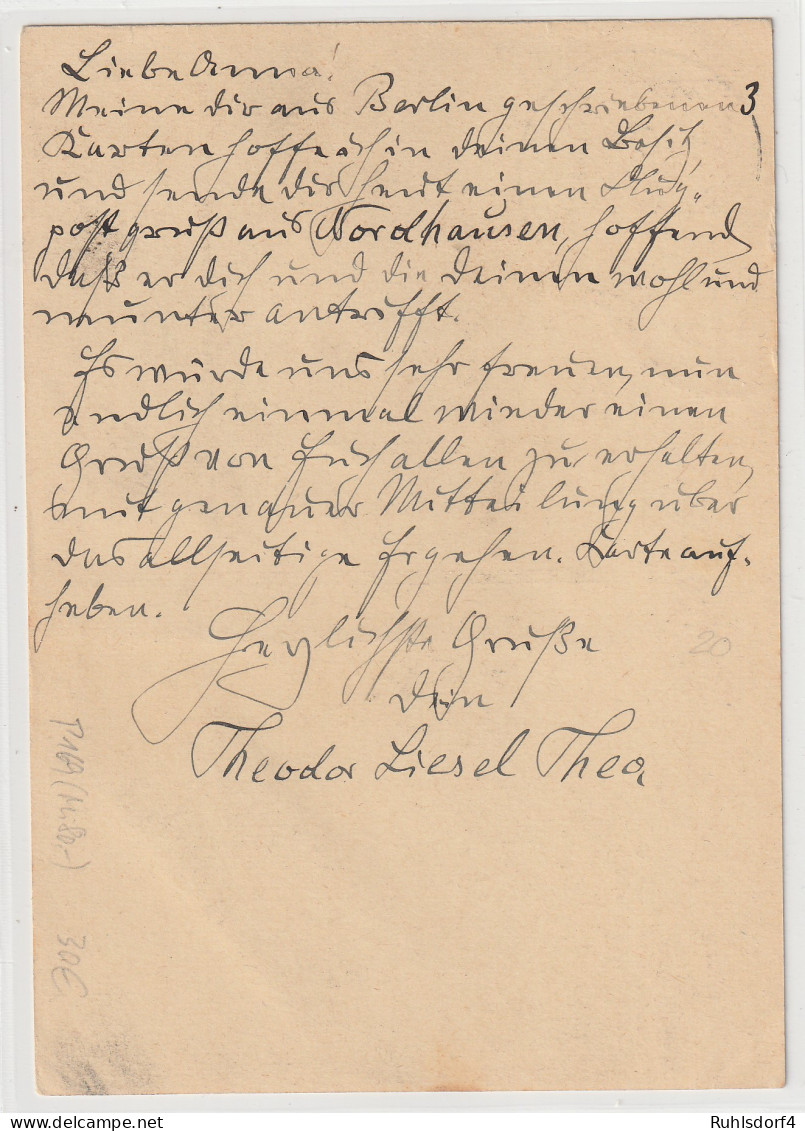 Liebe Anna!
Meine dir aus Berlin geschriebenen 3
Karten hoffe ich in deinen Besitz,
und sende dir heut einen Flug-
postgruß aus Nordhausen, hoffend
daß er dich und die deinen wohl und
munter antrifft.
Es würde uns sehr freuen, nun
endlich einmal wieder einen
Gruß von Euch allen zu erhalten,
mit genauer Mitteilung über
das allseitige Ergehen. Karte auf-
heben.
Herzlichste Grüße
dein
Theodor Liesel Thea
20
30€
Ruhlsdorf4